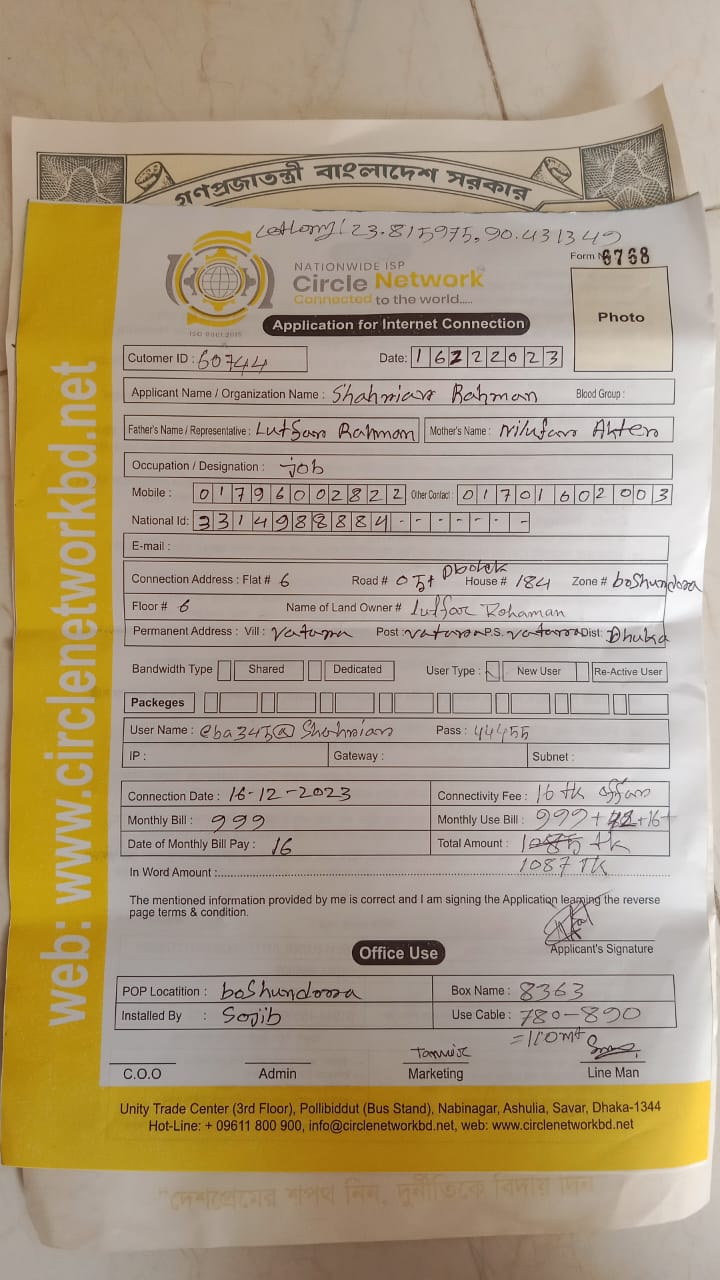 গণপ্রজাতন্ত্রী বাংলাদেশ সরকার
23.815975, 90.431349
NATIONWIDE ISP
Circle Network
Connected to the world.....
ISO 9001:2015
Form N 6768
Application for Internet Connection
Photo
Cutomer ID : 60744 Date: 16122023
Applicant Name / Organization Name : Shahriar Rahman Blood Group :
Father's Name / Representative : Lutfar Rahman Mother's Name : Nilufar Akter
Occupation / Designation : job
Mobile : 01796002822 Other Contact : 01701602003
National Id: 3314988884 - - - - - - -
E-mail :
Connection Address : Flat # 6 Road # 05+ Dbolck House # 184 Zone # boshundora
Floor # 6 Name of Land Owner # lutfor Rohaman
Permanent Address : Vill : Vatara Post : Vatara P.S. Vatara Dist: Dhaka
Bandwidth Type Shared Dedicated User Type : New User Re-Active User
Packeges
User Name : eba345@Shahriar Pass : 44455
IP : Gateway : Subnet :
Connection Date : 16-12-2023 Connectivity Fee : 16 tk offar
Monthly Bill : 999 Monthly Use Bill : 999+72+16+
Date of Monthly Bill Pay : 16 Total Amount : 1085 tk
In Word Amount : 1087 TK
The mentioned information provided by me is correct and I am signing the Application learning the reverse
page terms & condition.
Applicant's Signature
Office Use
POP Locatition : boshundora Box Name : 8363
Installed By : Sojib Use Cable : 780-890
=110mt
C.O.O Admin Marketing Line Man
Unity Trade Center (3rd Floor), Pollibiddut (Bus Stand), Nabinagar, Ashulia, Savar, Dhaka-1344
Hot-Line: + 09611 800 900, info@circlenetworkbd.net, web: www.circlenetworkbd.net
web: www.circlenetworkbd.net
"দেশপ্রেমের শপথ নিন, দুর্নীতিকে বিদায় দিন